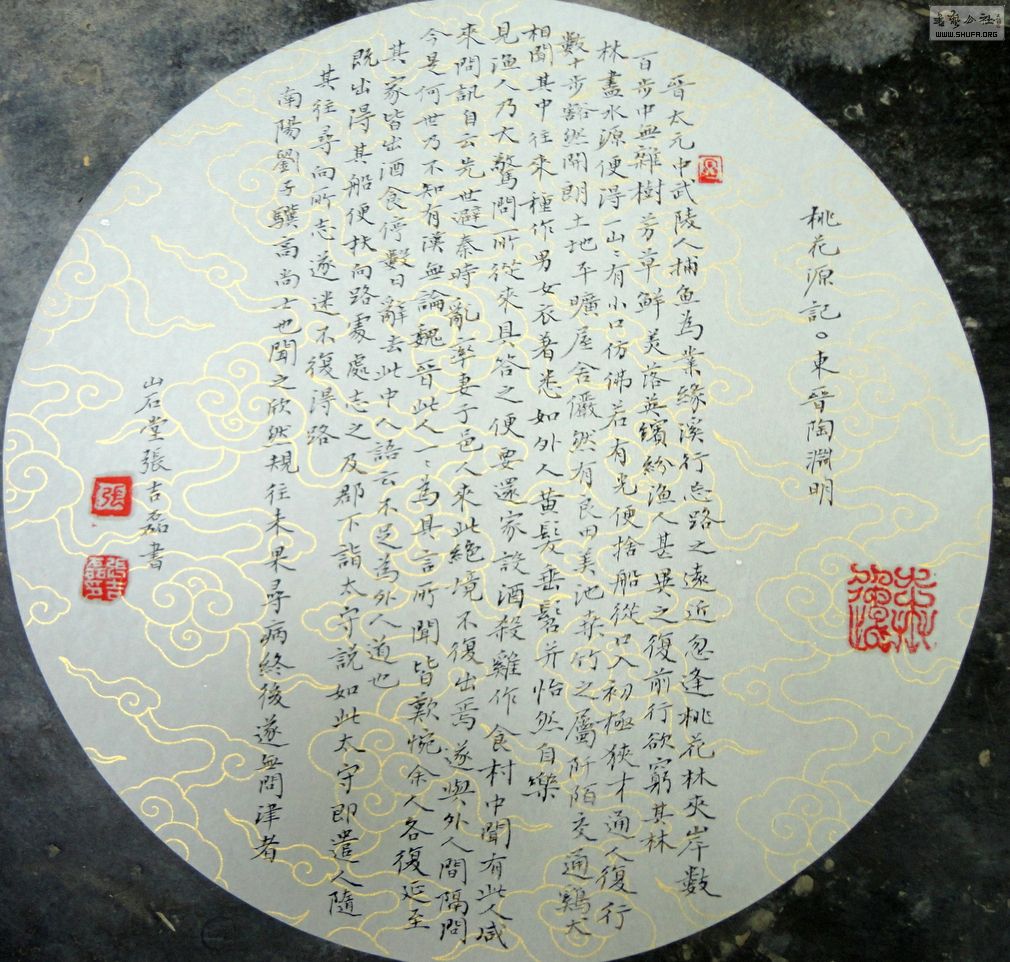 桃花源記。東晉陶淵明
晉太元中武陵人捕魚為業緣溪行忘路之遠近忽逢桃花林夾岸數
百步中無雜樹芳草鮮美落英繽紛漁人甚異之復前行欲窮其林
林盡水源便得一山〻有小口仿彿若有光便捨船從口入初極狹才通人復行
數十步豁然開朗土地平曠屋舍儼然有良田美池桑竹之屬阡陌交通鷄犬
相聞其中往來種作男女衣著悉如外人黃髮垂髫并怡然自樂
見漁人乃大驚問所從來具答之便要還家設酒殺雞作食村中聞有此人咸
來問訊自云先世避秦時亂率妻子邑人來此絕境不復出焉遂與外人間隔問
今是何世乃不知有漢無論魏晉此人一〻為具言所聞皆歎惋余人各復延至
其家皆出酒食停數日辭去此中人語云不足為外人道也
既出得其船便扶向路處處志之及郡下詣太守說如此太守即遣人隨
其往尋向所志遂迷不復得路
南陽劉子驥高尚士也聞之欣然規往未果尋病終後遂無問津者
山石堂張吉磊書
張
張吉磊印
書法公社
WWW.SHUFA.ORG